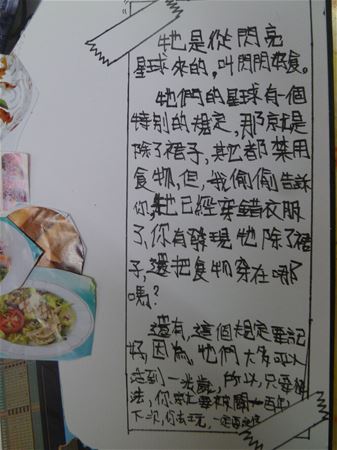 牠是從閃亮
星球來的,叫閃閃來食。
牠們的星球有一個
特別的規定,那就是
除了裙子,其它都禁用
食物,但,我偷偷告訴
你,牠已經穿錯衣服
了,你有發現牠除了裙
子,還把食物穿在哪
嗎?
還有,這個規定要記
好,因為,牠們大多可以
活到一光歲,所以,只要
法,你就要被關一百年
下次,你去玩,一定要